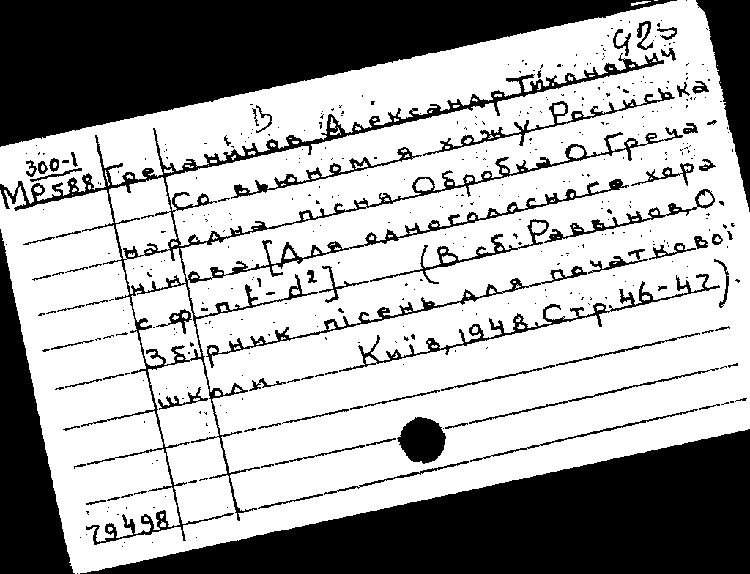 923
В
300-1
МР588 Гречанінов, Александр Тихонович
Со вьюном я хожу. Російська
народна пісня. Обробка О. Греча-
нінова. [Для одноголосного хора
с ф.-п. t'- d²]. (В сб.: Раввінов, О.
Збірник пісень для початкової
школи. Київ, 1948. Стр. 46-47).
79498